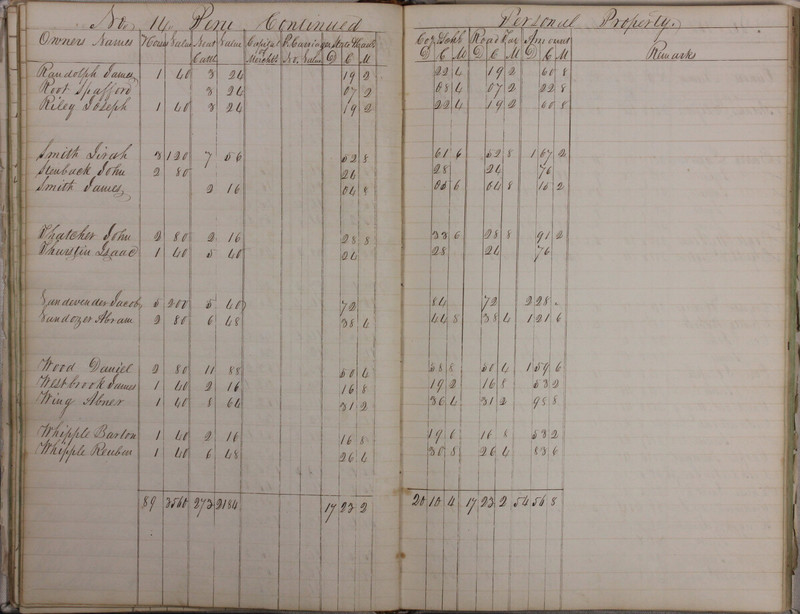 No. 14 Peru Continued Personal Property.
Owners Names Horses Value Neat Cattle Value Capital of P. Carriages No. Value State D C M Co. & Tshp D C M Road Tax D C M Amount D C M Remarks
Randolph James 1 40 3 24 19 2 22 4 19 2 60 8
Root Spafford 3 24 07 2 08 4 07 2 22 8
Riley Joseph 1 40 3 24 19 2 22 4 19 2 60 8
Smith 3 120 7 56 52 8 61 6 52 8 1 67 2
John 2 80 24 28 24 76
Smith James 2 16 04 8 05 6 04 8 15 2
Thatcher John 2 80 2 16 28 8 33 6 28 8 91 2
Isaac 1 40 5 40 24 28 24 76
Vandevender Jacob 5 200 5 40 72 84 72 2 28
Vandozer Abram 2 80 6 48 38 4 44 8 38 4 1 21 6
Wood Daniel 2 80 11 88 50 4 58 8 50 4 1 59 6
Westbrook James 1 40 2 16 16 8 19 2 16 8 53 2
Wing Abner 1 40 8 64 31 2 36 4 31 2 98 8
Whipple Barton 1 40 2 16 16 8 19 6 16 8 53 2
Whipple Reuben 1 40 6 48 26 4 30 8 26 4 83 6
89 3560 273 2184 17 23 2 20 10 4 17 23 2 54 56 8